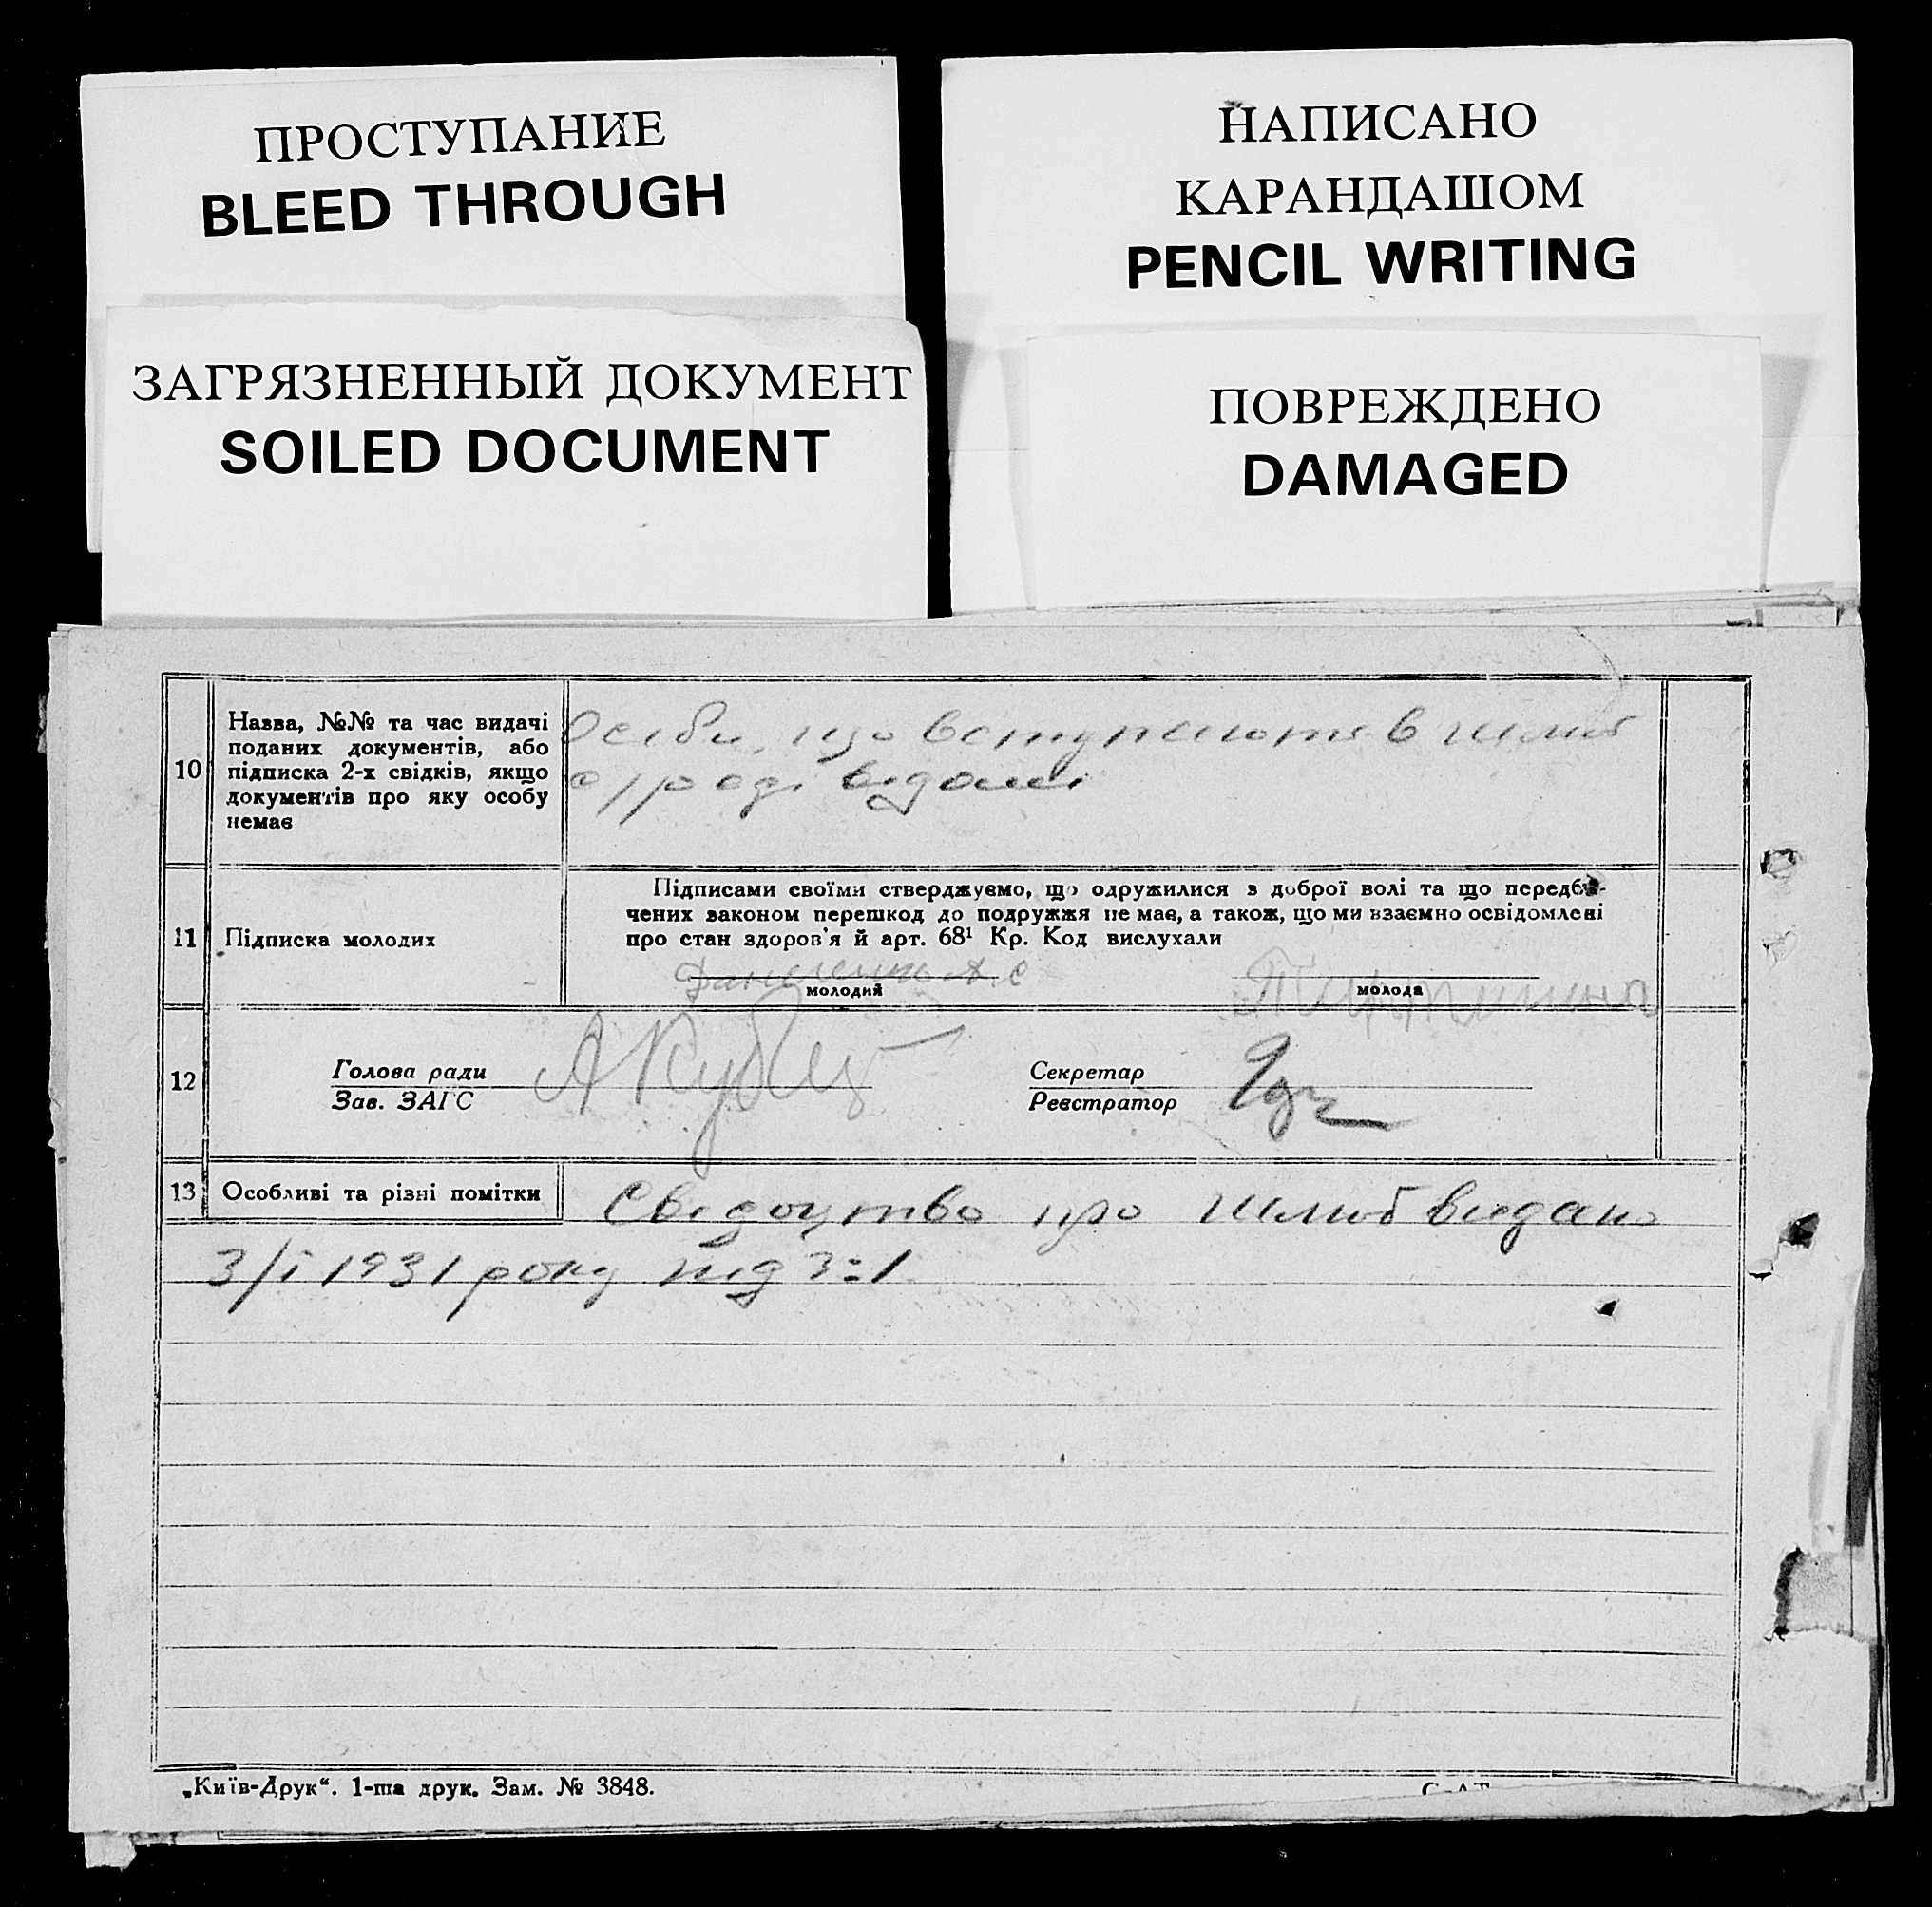 ПРОСТУПАНИЕ
BLEED THROUGH
НАПИСАНО
КАРАНДАШОМ
PENCIL WRITING
ЗАГРЯЗНЕННЫЙ ДОКУМЕНТ
SOILED DOCUMENT
ПОВРЕЖДЕНО
DAMAGED
10
Назва, №№ та час видачі
поданих документів, або
підписка 2-х свідків, якщо
документів про яку особу
немає
Особи, що вступають в шлюб
відомі
11
Підписка молодих
Підписами своїми стверджуємо, що одружилися з доброї волі та що передба-
чених законом перешкод до подружжя не має, а також, що ми взаємно освідомлені
про стан здоров'я й арт. 68¹ Кр. Код вислухали
молодий
молода
12
Голова ради
Зав. ЗАГС
Секретар
Реєстратор
13
Особливі та різні помітки
Свідоцтво про шлюб видано
3/I 1931 року під
„Київ-Друк“. 1-ша друк. Зам. № 3848.